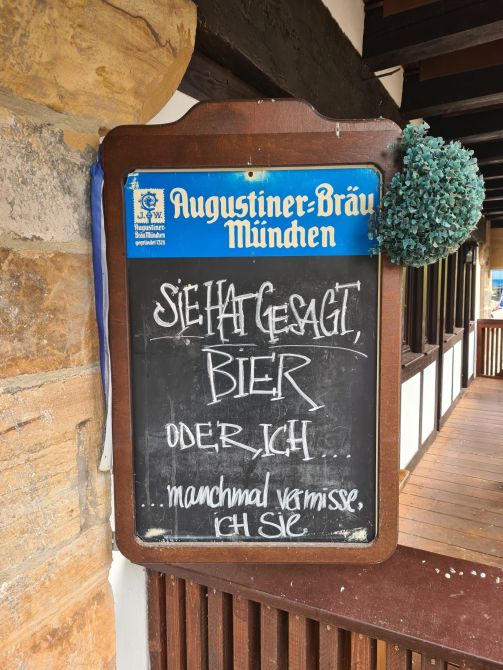 J. W.
Augustiner
Bräu München
gegründet 1328
Augustiner-Bräu
München
SIE HAT GESAGT,
BIER
ODER, ICH ...
...manchmal vermisse,
ICH SIE